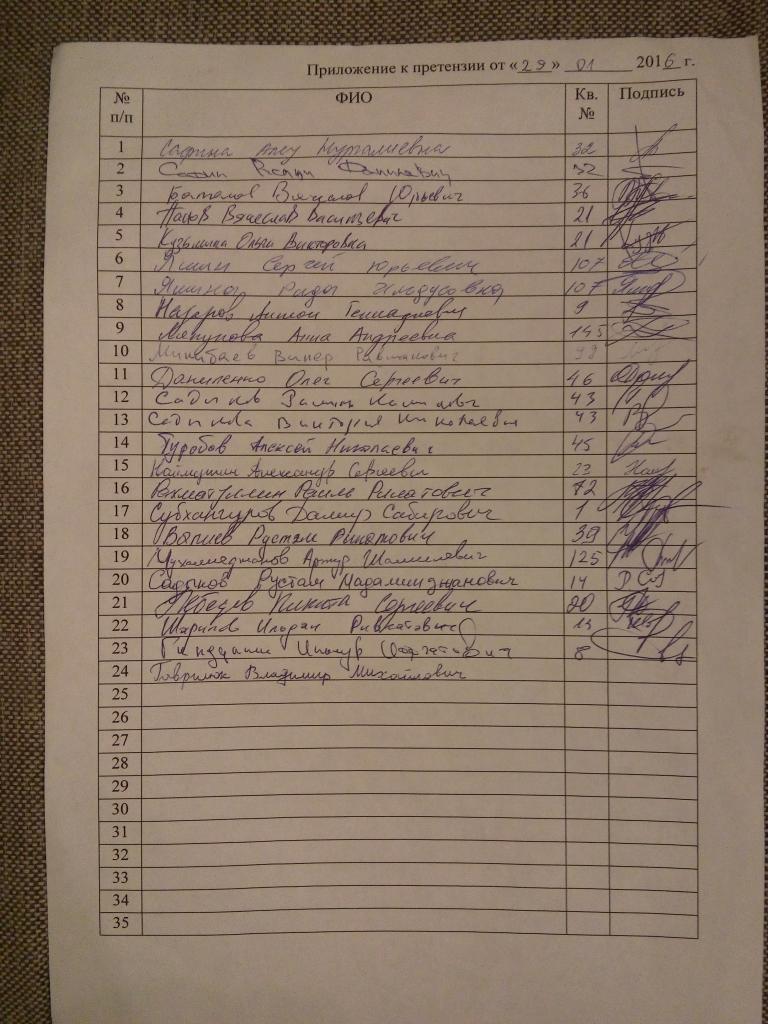 Приложение к претензии от «29» 01 2016 г.
№ п/п ФИО Кв. № Подпись
1 Сафина Нургалиевна 32
2 32
3 Вячеслав Юрьевич 36
4 Вячеслав Васильевич 21
5 Кузьмина Ольга Викторовна 21
6 Яшин Сергей Юрьевич 107
7 Яшина Рида 107
8 Назаров Антон Геннадьевич 9
9 Анна Андреевна 145
10 Минибаев Винер 99
11 Даниленко Олег Сергеевич 46
12 Садыков 43
13 Садыкова Виктория Николаевна 43
14 Туробов Алексей Николаевич 45
15 Наймушин Александр Сергеевич 23
16 Рахматуллин Раиль Ринатович 72
17 Субхангулов Дамир Сабирович 1
18 Валиев Рустам Ринатович 39
19 Мухамеджанов Артур Шамилевич 125
20 Садыков Рустам Мадаминжанович 14
21 Лебедев Никита Сергеевич 20
22 Шарипов Ильдан 13
23 8
24 Гаврилюк Владимир Михайлович
25
26
27
28
29
30
31
32
33
34
35